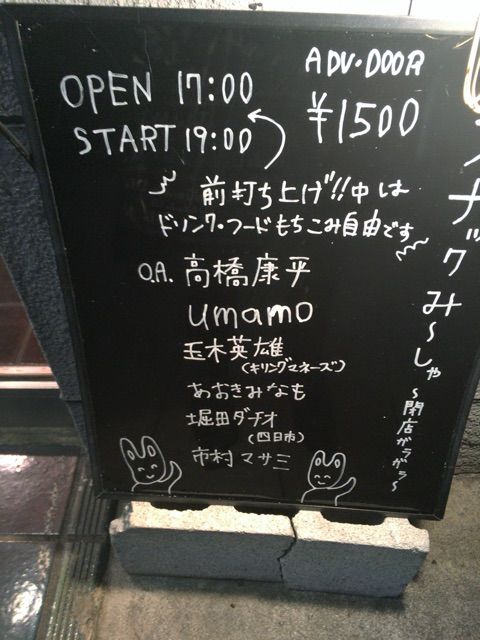 OPEN 17:00
START 19:00
ADV・DOOR
¥1500
前打ち上げ!!中は
ドリンク・フードもちこみ自由です
O.A. 高橋康平
umamo
玉木英雄
(キリングマネーズ)
あおきみなも
堀田ダチオ
(四日市)
市村マサミ
ナックみ〜しゃ
〜閉店ガラガラ〜